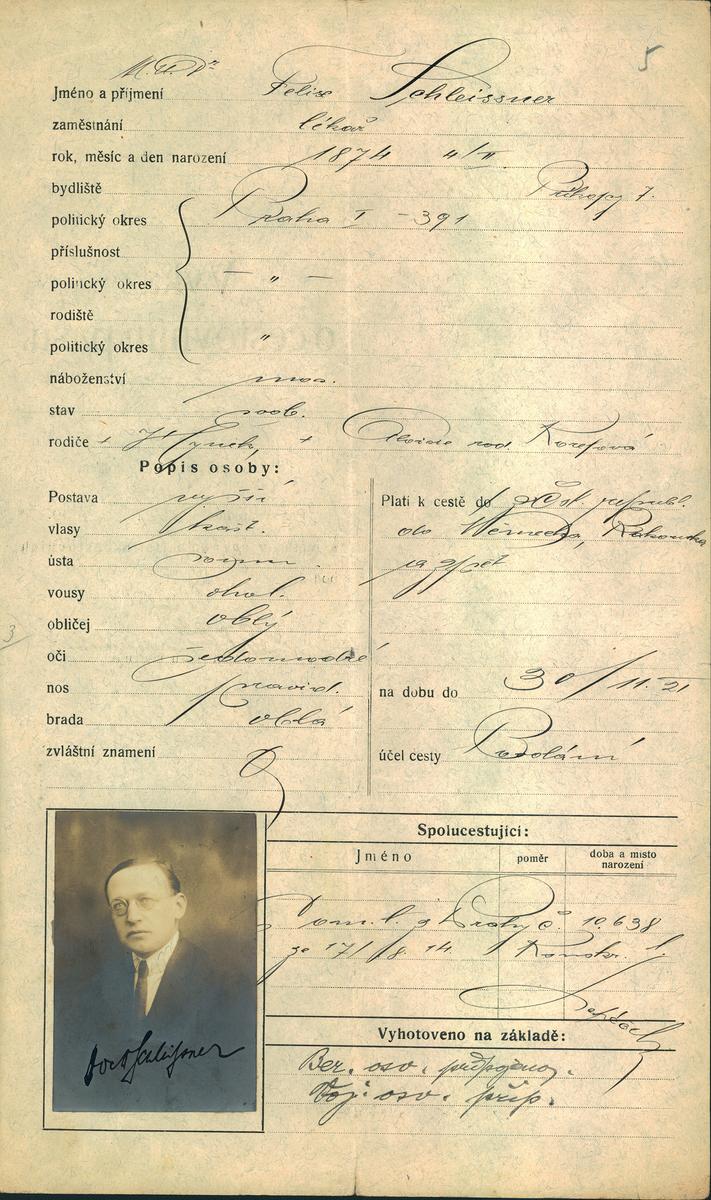 5
M.U.Dr
Jméno a příjmení Felix Schleissner
zaměstnání lékař
rok, měsíc a den narození 1874 4/II
bydliště Příkopy 7.
politický okres Praha I - 391
příslušnost
politický okres — " —
rodiště
politický okres "
náboženství mos.
stav svob.
rodiče Hynek, + rod
Popis osoby:
Postava vyšší
vlasy kašt.
ústa
vousy ohol.
obličej oblý
oči šedomodré
nos pravid.
brada oblá
zvláštní znamení
Platí k cestě do Čsl. republ.
do Německa, Rakouska
a zpět
na dobu do 30/11.21
účel cesty
Spolucestující:
Jméno poměr doba a místo narození
Dom. l. z Prahy č. 10.638
ze 17/8. 14. Konskr.
Vyhotoveno na základě:
Ber. osv.
Voj. osv. přip.
3
Schleissner